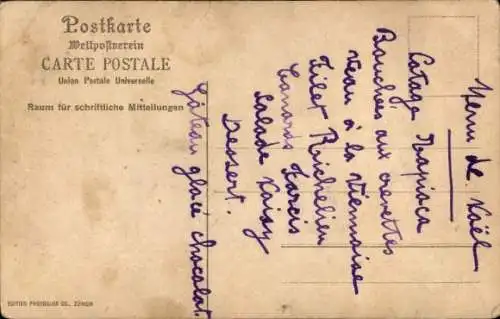 Postkarte
Weltpostverein
CARTE POSTALE
Union Postale Universelle
Raum für schriftliche Mitteilungen
Menu de Noël
Potage Tapioca
Bouchées aux crevettes
Veau à la Viennaise
Filet Richelieu
Canards Farcis
Salade Daisy
Dessert.
Gâteau glacé chocolat.
EDITION PHOTOGLOB CO., ZÜRICH